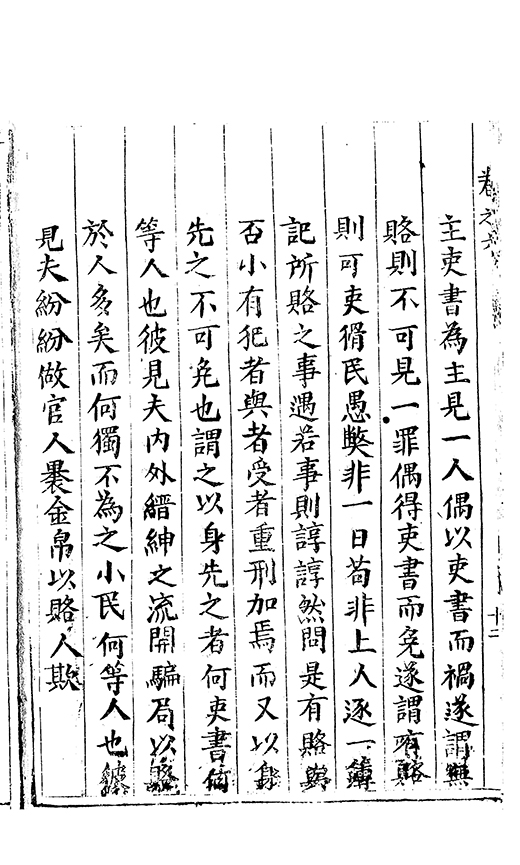 卷之六
十二
主吏書為主見一人偶以吏書而禍遂謂無
賂則不可見一罪偶得吏書而免遂謂有賂
則可吏猾民愚弊非一日苟非上人逐一簿
記所賂之事遇若事則諄諄然問是有賂與
否小有犯者與者受者重刑加焉而又以身
先之不可免也謂之以身先之者何吏書何
等人也彼見夫內外縉紳之流開騙局以
於人多矣而何獨不為之小民何等人也彼
見夫紛紛做官人褁金帛以賂人欺